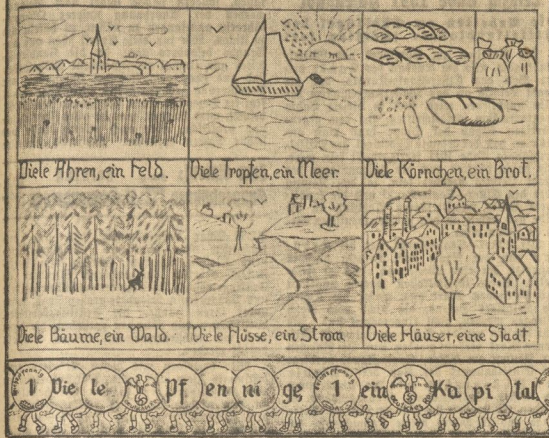 Viele Ähren, ein Feld.
Viele Tropfen, ein Meer.
Viele Körnchen, ein Brot.
Viele Bäume, ein Wald.
Viele Flüsse, ein Strom
Viele Häuser, eine Stadt.
1 Vie le Pf en ni ge 1 ein Ka pi tal